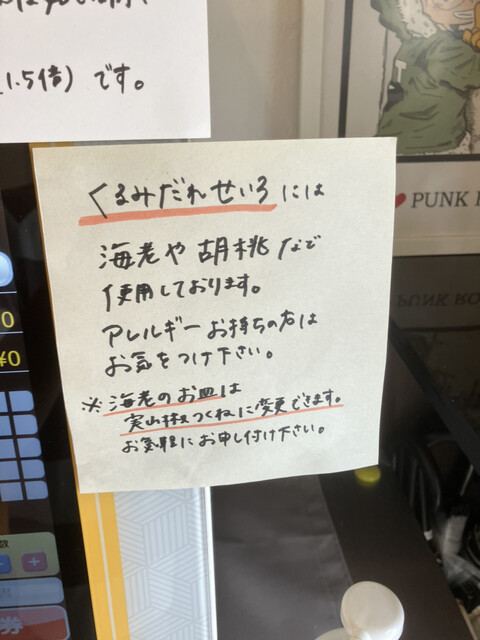 (1.5倍)です。
くるみだれせいろには
海老や胡桃など
使用しております。
アレルギーお持ちの方は
お気をつけ下さい。
※海老のお皿は
実山椒つくねに変更できます。
お気軽にお申し付け下さい。
PUNK
0
¥0
券